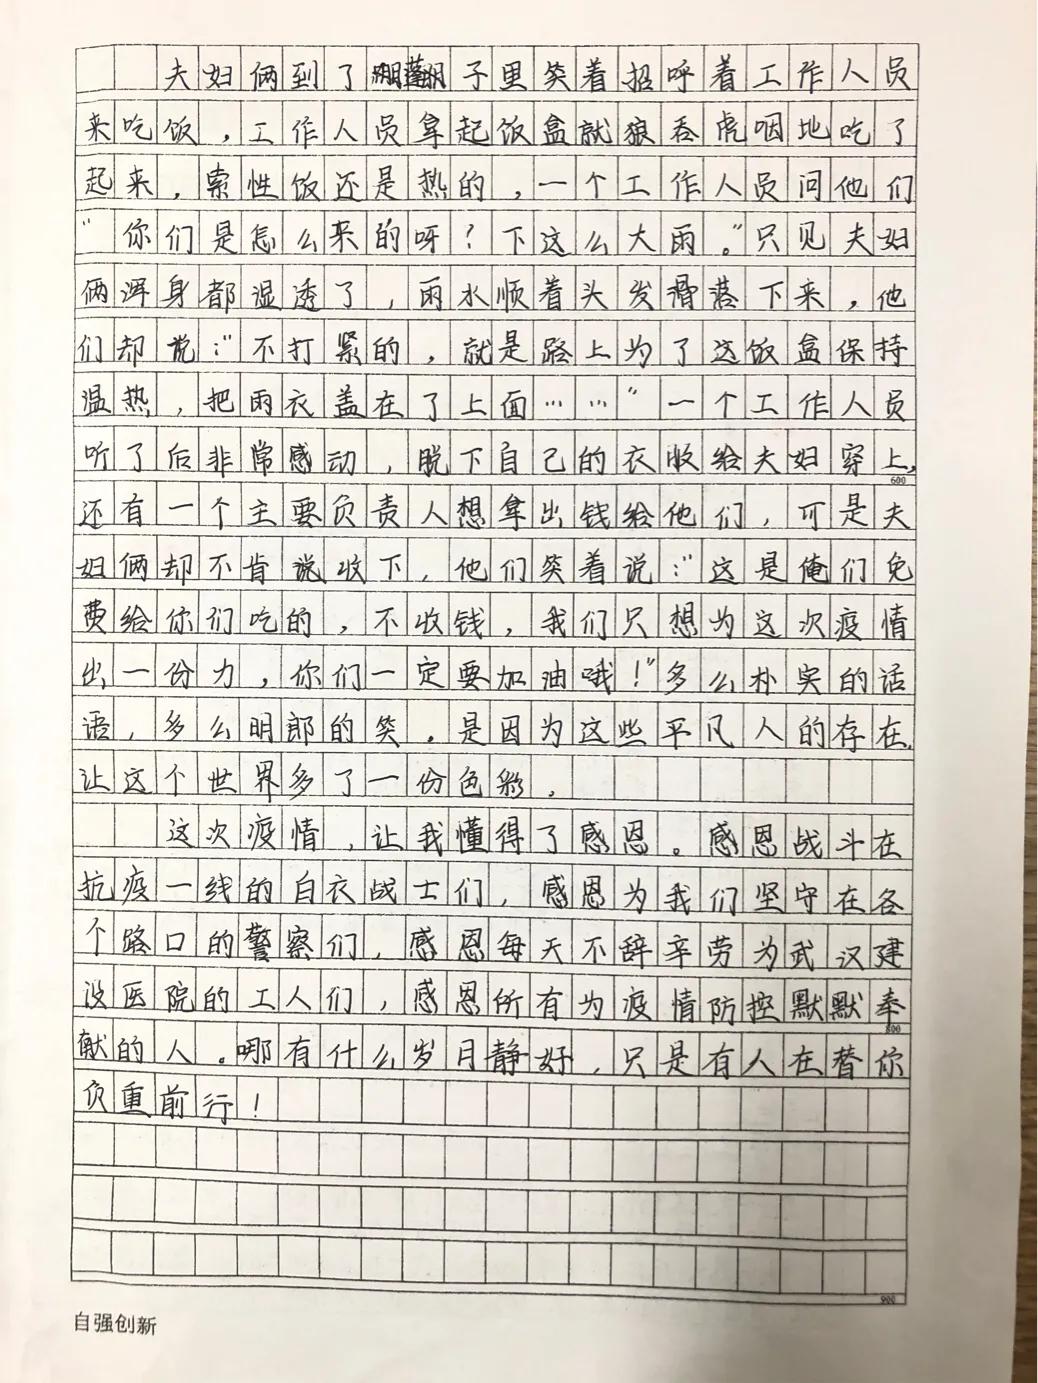 夫妇俩到了棚子里笑着招呼着工作人员
来吃饭，工作人员拿起饭盒就狼吞虎咽地吃了
起来，索性饭还是热的，一个工作人员问他们
“你们是怎么来的呀？下这么大雨。”只见夫妇
俩浑身都湿透了，雨水顺着头发滑落下来，他
们却说：“不打紧的，就是路上为了这饭盒保持
温热，把雨衣盖在了上面……”一个工作人员
听了后非常感动，脱下自己的衣收给夫妇穿上，
600
还有一个主要负责人想拿出钱给他们，可是夫
妇俩却不肯说收下，他们笑着说：“这是俺们免
费给你们吃的，不收钱，我们只想为这次疫情
出一份力，你们一定要加油哦！”多么朴实的话
语，多么明郎的笑。是因为这些平凡人的存在，
让这个世界多了一份色彩。
这次疫情，让我懂得了感恩。感恩战斗在
抗疫一线的白衣战士们，感恩为我们坚守在各
个路口的警察们，感恩每天不辞辛劳为武汉建
设医院的工人们，感恩所有为疫情防控默默奉
800
献的人。哪有什么岁月静好，只是有人在替你
负重前行！
900
自强创新